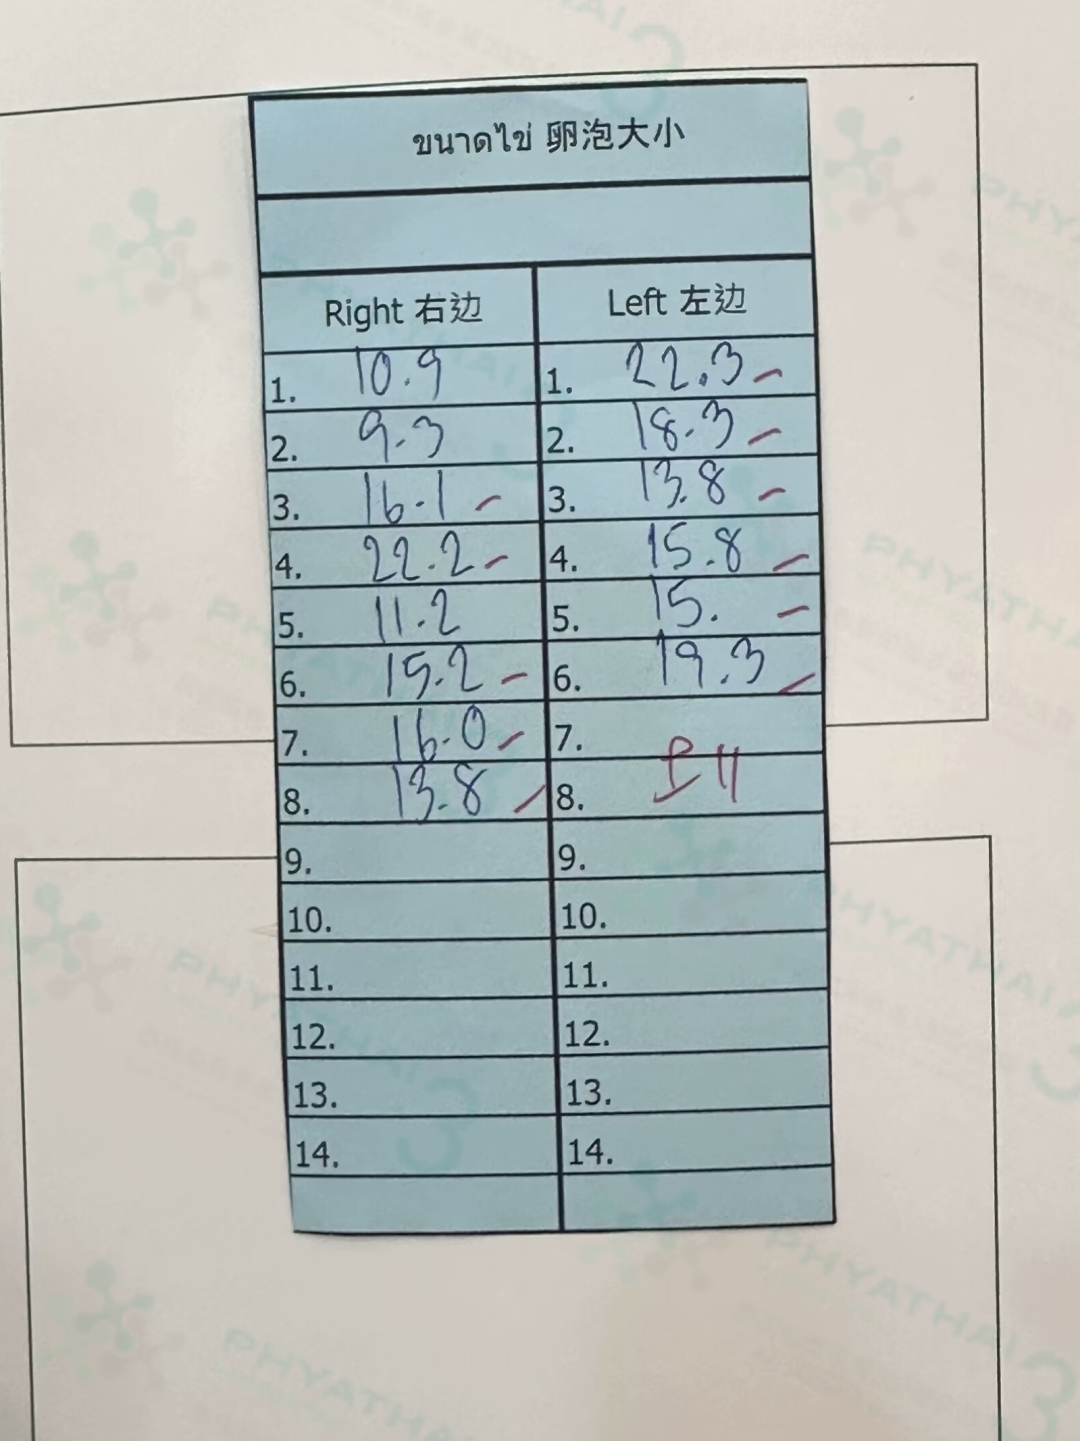 ขนาดไข่ 卵泡大小
Right 右边 Left 左边
1. 10.9 1. 22.3 –
2. 9.3 2. 18.3 –
3. 16.1 – 3. 13.8 –
4. 22.2 – 4. 15.8 –
5. 11.2 5. 15. –
6. 15.2 – 6. 19.3 –
7. 16.0 – 7.
8. 13.8 – 8.
9. 9.
10. 10.
11. 11.
12. 12.
13. 13.
14. 14.
PHYATHAI 3